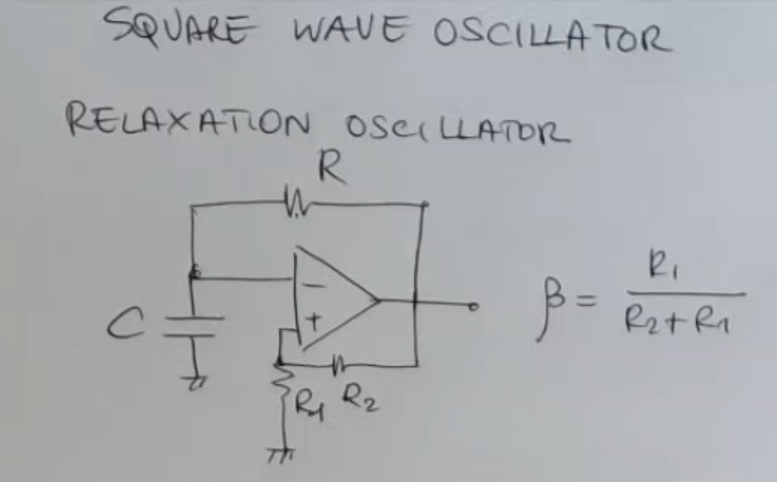 SQUARE WAVE OSCILLATOR
RELAXATION OSCILLATOR
R
C
-
+
R1
R2
β = R1 / (R2 + R1)